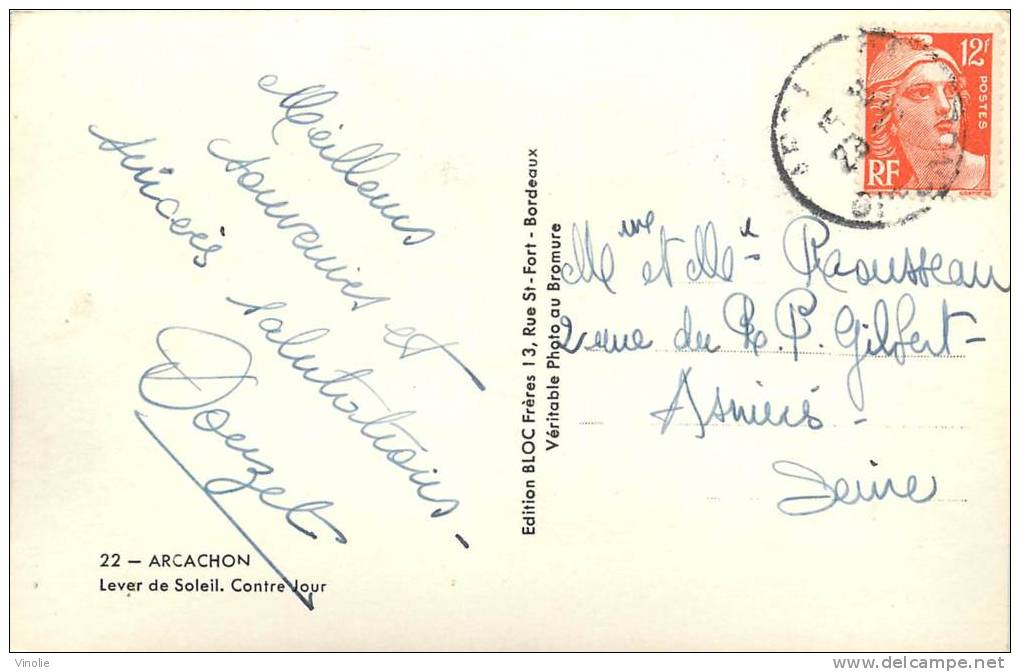 Meilleurs
souvenirs et
sincères salutations -
Douzet
22 — ARCACHON
Lever de Soleil. Contre Jour
Edition BLOC Frères 13, Rue St-Fort - Bordeaux
Véritable Photo au Bromure
12F
POSTES
RF
23
Mme et Mr Raousseau
2 rue du R. P. Gilbert -
Asnières -
Seine
Vinolie
www.delcampe.net